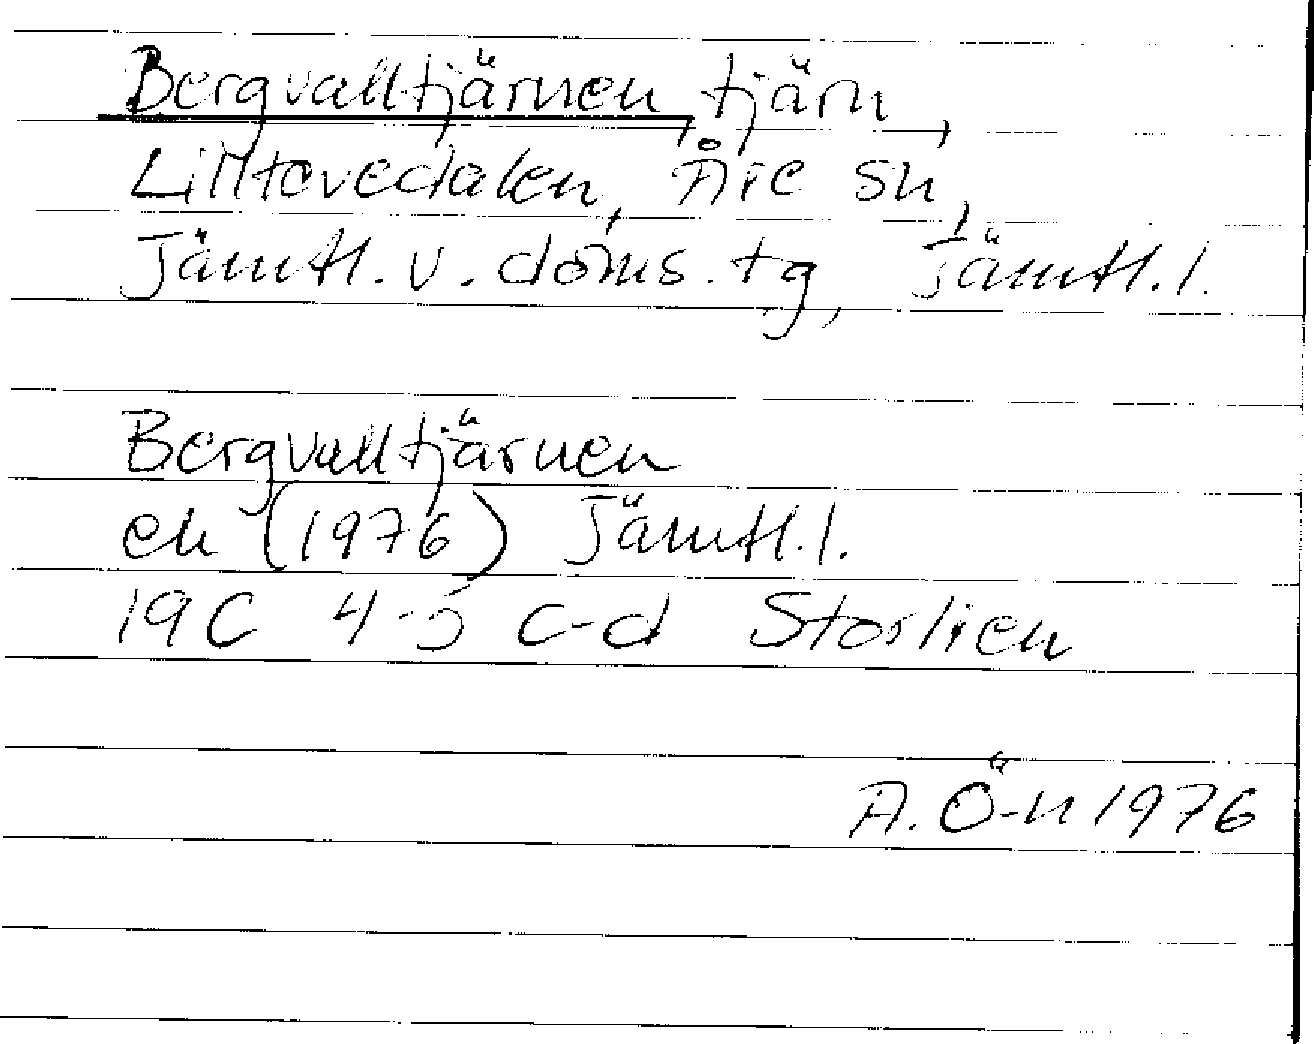 Bergvalltjärnen, tjärn,
Lilltevedalen, Åre sn,
Jämtl. v. doms. tg, Jämtl. l.
Bergvalltjärnen
ek (1976) Jämtl. l.
19C 4-5 c-d Storlien
A. Ö-n 1976